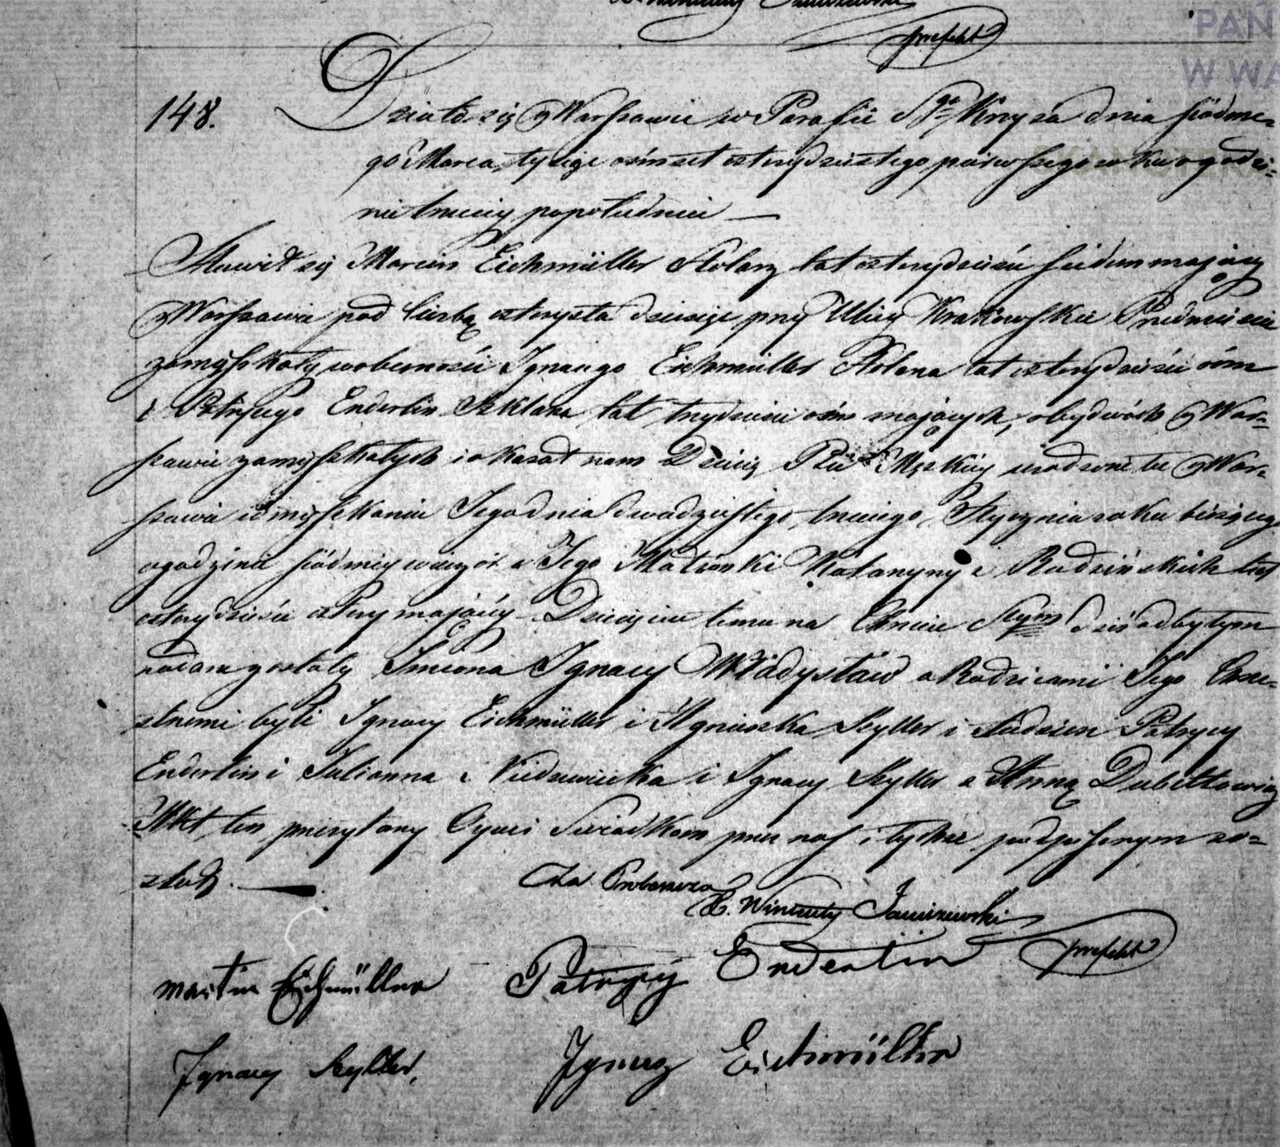 prefekt
PAŃ
W WA
148. Działo się w Warszawie w Parafii Sgo Krzyża dnia siódme-
go Marca, tysiąc ośmset czterydziestego pierwszego roku o godzi-
nie trzeciej popołudniu —
Stawił się Marcin Eichmüller Stolarz lat czterydzieści siedem mający
w Warszawie pod liczbą czterysta dziesięć przy Ulicy Krakowskie Przedmieście
zamyszkały, w obecności Ignacego Eichmüller Stolarza lat czterydzieści ośm
i Patrycego Enderlin Szklarza lat trzydzieści ośm mających, obydwóch w War-
szawie zamyszkałych i okazał nam Dziecię Płci Męzkiej urodzone tu w War-
szawie w mieszkaniu Jego dnia dwadziestego trzeciego Stycznia roku bieżącego
o godzinie siódmej wieczór z Jego Małżonki Katarzyny z Radzińskich lat
czterydzieści cztery mającej. Dziecięciu temu na Chrzcie Stym dziś odbytym
nadane zostały Imiona Ignacy Władysław a Rodzicami Jego Chrze-
stnemi byli Ignacy Eichmüller i Agnieszka Szyller i Patrycy
Enderlin i Julianna Niedzwiecka i Ignacy Szyller z Anną
Akt ten przeczytany Ojcu i Świadkom przez nas i tychże podpisanym zo-
stał. — Za Proboszcza
X. Wincenty Januszewski
prefekt
Martin Eichmüller Patrycy Enderlin
Ignacy Szyller, Ignacy Eichmüller